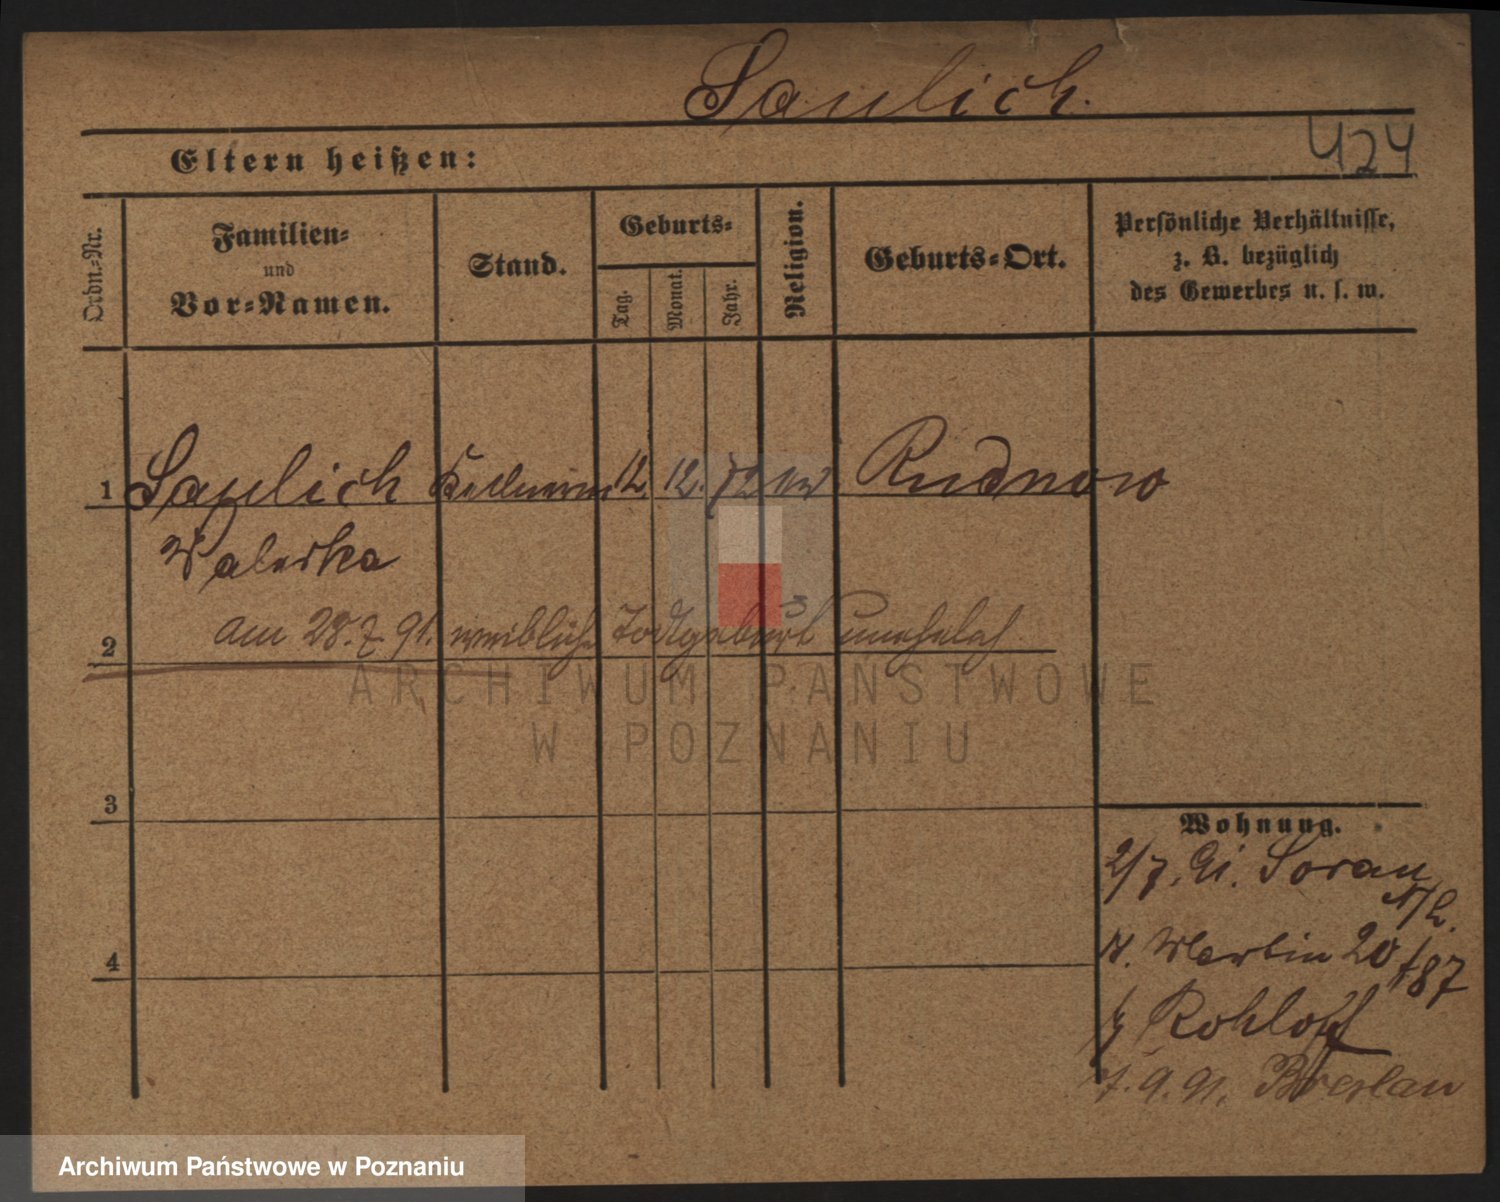 Saulich.
Eltern heißen:
424
Ordn.-Nr.
Familien-
und
Vor-Namen.
Stand.
Geburts-
Tag.
Monat.
Jahr.
Religion.
Geburts-Ort.
Persönliche Verhältnisse,
z. B. bezüglich
des Gewerbes u. s. w.
1 Saulich 12. 12. 72 Rudnow
Valeska
2 am 28. 7. 91. weibliche Todtgeburt unehelich
3
4
Wohnung.
2/7. 91. Sorau
St. Martin 20
Rohloff
7. 9. 91. Breslau
ARCHIWUM PAŃSTWOWE
W POZNANIU
Archiwum Państwowe w Poznaniu